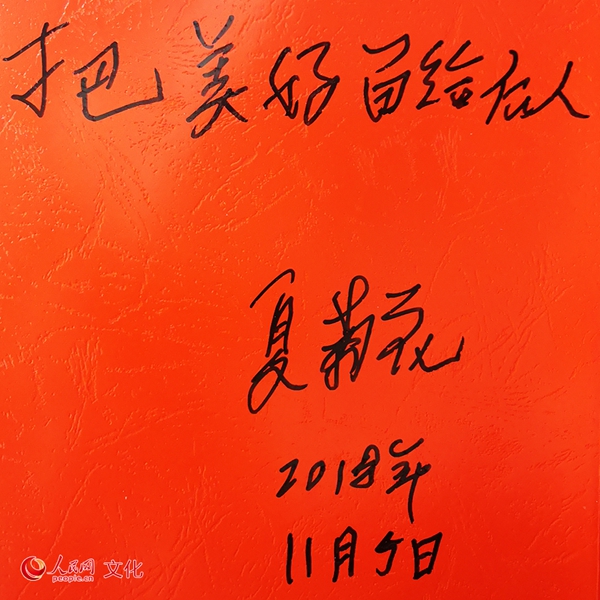 把美好留给后人
夏菊花
2018年
11月5日
人民网 文化
people.cn